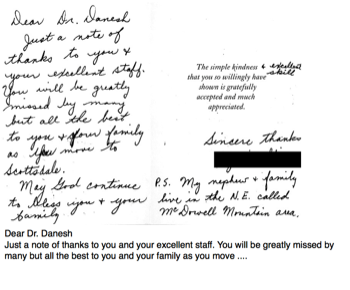 Dear Dr. Danesh
Just a note of
thanks to you &
your excellent staff.
You will be greatly
missed by many
but all the best
to you & your family
as you move to
Scottsdale.
May God continue
to bless you & your
family.
The simple kindness & excellent
skill
that you so willingly have
shown is gratefully
accepted and much
appreciated.
Sincere Thanks
P.S. My nephew & family
live in the N.E. called
McDowell Mountain area.
Dear Dr. Danesh
Just a note of thanks to you and your excellent staff. You will be greatly missed by
many but all the best to you and your family as you move ....